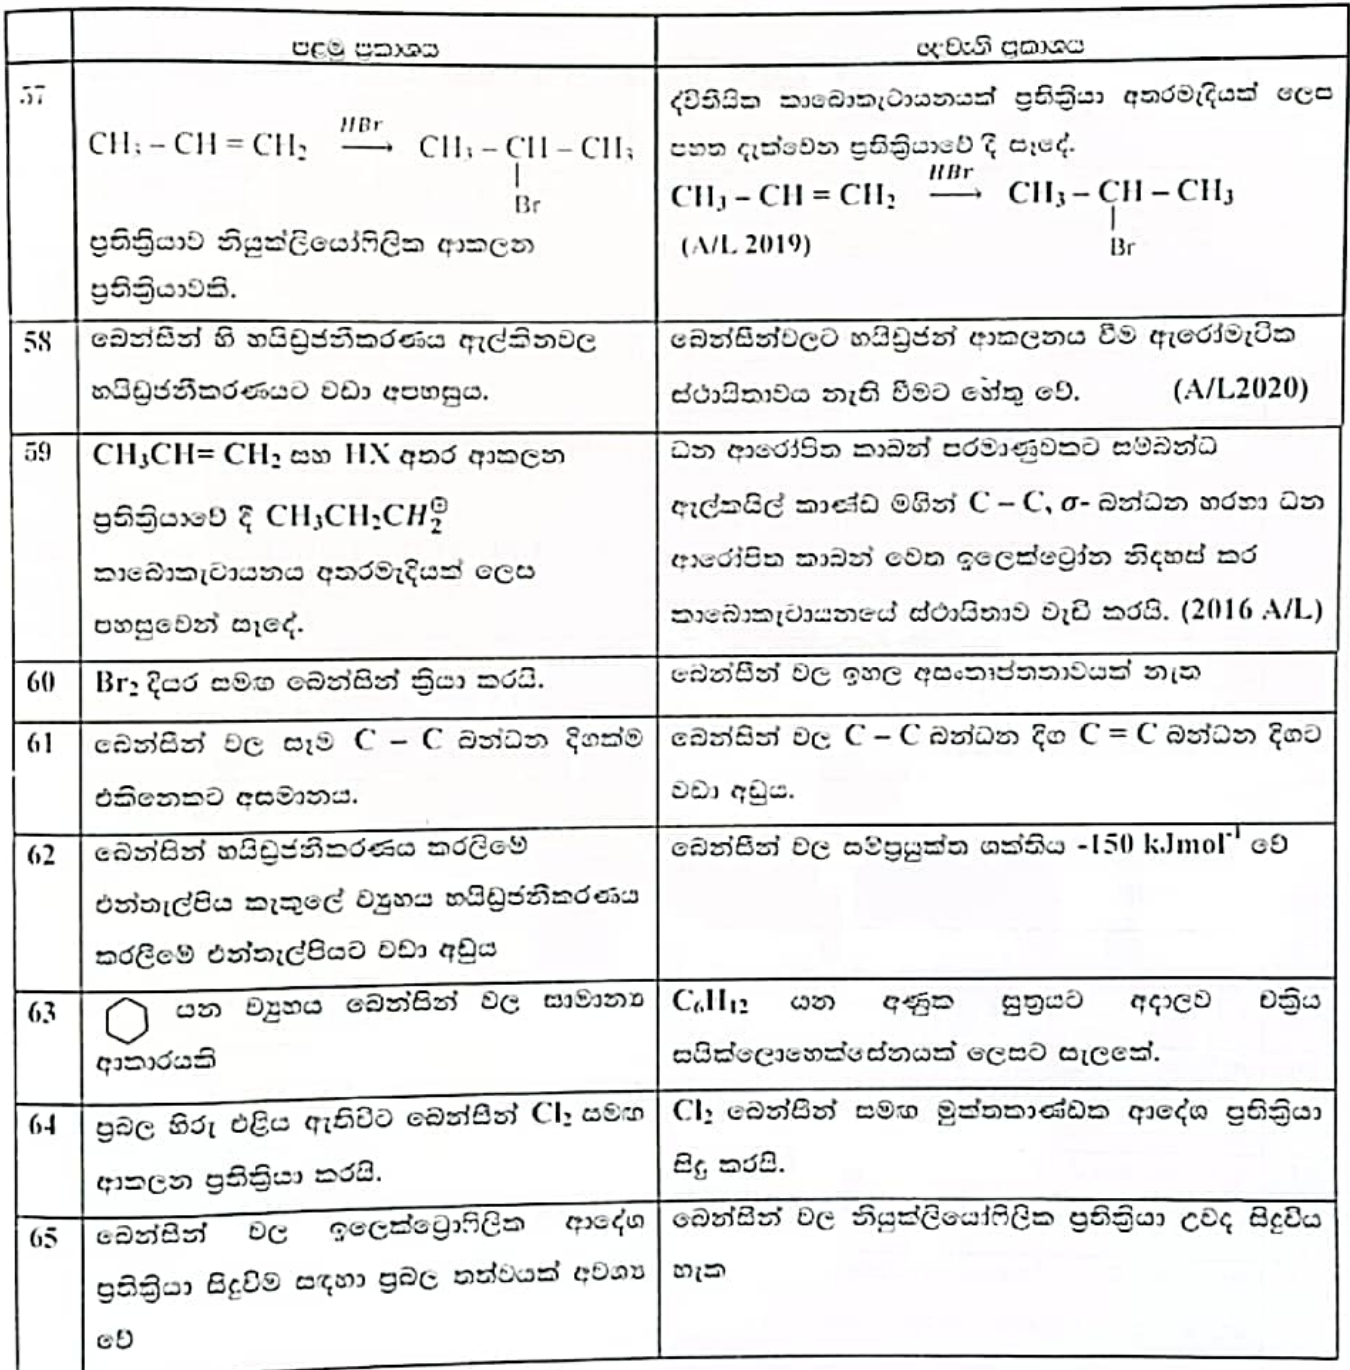 පළමු ප්‍රකාශය
දෙවැනි ප්‍රකාශය
57
CH₃ – CH = CH₂ HBr⟶ CH₃ – CH – CH₃
|
Br
ප්‍රතික්‍රියාව නියුක්ලියෝෆිලික ආකලන
ප්‍රතික්‍රියාවකි.
ද්විතීයික කාබොකැටායනයක් ප්‍රතික්‍රියා අතරමැදියක් ලෙස
පහත දැක්වෙන ප්‍රතික්‍රියාවේ දී සෑදේ.
CH₃ – CH = CH₂ HBr⟶ CH₃ – CH – CH₃
|
(A/L 2019) Br
58
බෙන්සීන් හි හයිඩ්‍රජනීකරණය ඇල්කීනවල
හයිඩ්‍රජනීකරණයට වඩා අපහසුය.
බෙන්සීන්වලට හයිඩ්‍රජන් ආකලනය වීම ඇරෝමැටික
ස්ථායිතාවය නැති වීමට හේතු වේ. (A/L2020)
59
CH₃CH= CH₂ සහ HX අතර ආකලන
ප්‍රතික්‍රියාවේ දී CH₃CH₂CH₂⊕
කාබොකැටායනය අතරමැදියක් ලෙස
පහසුවෙන් සෑදේ.
ධන ආරෝපිත කාබන් පරමාණුවකට සම්බන්ධ
ඇල්කයිල් කාණ්ඩ මගින් C – C, σ- බන්ධන හරහා ධන
ආරෝපිත කාබන් වෙත ඉලෙක්ට්‍රෝන නිදහස් කර
කාබොකැටායනයේ ස්ථායිතාව වැඩි කරයි. (2016 A/L)
60
Br₂ දියර සමඟ බෙන්සින් ක්‍රියා කරයි.
බෙන්සීන් වල ඉහල අසංතෘප්තතාවයක් නැත
61
බෙන්සීන් වල සෑම C – C බන්ධන දිගක්ම
එකිනෙකට අසමානය.
බෙන්සින් වල C – C බන්ධන දිග C = C බන්ධන දිගට
වඩා අඩුය.
62
බෙන්සින් හයිඩ්‍රජනීකරණය කරලීමේ
එන්තැල්පිය කැකුලේ ව්‍යුහය හයිඩ්‍රජනීකරණය
කරලීමේ එන්තැල්පියට වඩා අඩුය
බෙන්සීන් වල සම්ප්‍රයුක්ත ශක්තිය -150 kJmol⁻¹ වේ
63
යන ව්‍යුහය බෙන්සින් වල සාමාන්‍ය
ආකාරයකි
C₆H₁₂ යන අණුක සූත්‍රයට අදාලව චක්‍රිය
සයික්ලොහෙක්සේනයක් ලෙසට සැලකේ.
64
ප්‍රබල හිරු එළිය ඇතිවිට බෙන්සින් Cl₂ සමඟ
ආකලන ප්‍රතික්‍රියා කරයි.
Cl₂ බෙන්සින් සමඟ මුක්තකාණ්ඩක ආදේශ ප්‍රතික්‍රියා
සිදු කරයි.
65
බෙන්සීන් වල ඉලෙක්ට්‍රොෆිලික ආදේශ
ප්‍රතික්‍රියා සිදුවීම සඳහා ප්‍රබල තත්වයක් අවශ්‍ය
වේ
බෙන්සින් වල නියුක්ලියෝෆිලික ප්‍රතික්‍රියා උවද සිදුවිය
හැක